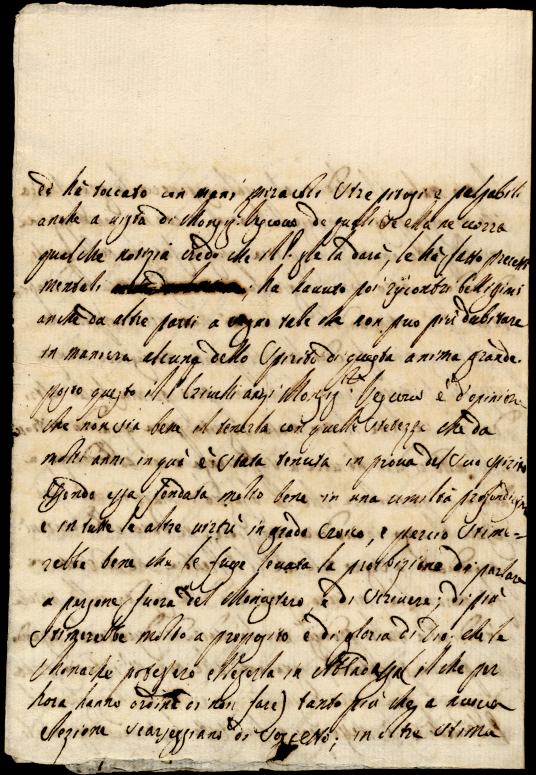 ed hà toccato con mani miracoli strepitosi e palpabili
anche a vista di Monsig. Vescovo, de quali se ella ne vorrà
qualche notizia credo che il P. gle la darà, le hà fatto
mentali ha havuto poi riscontri bellissimi
anche da altre parti a segno tale che non può più dubitare
in maniera alcuna dello Spirito di questa anima grande.
posto questo il P. Crivelli anzi Monsig. Vescovo è d'opinione
che non sia bene il tenerla con quelle che da
molti anni in quà è stata tenuta in prova del suo spirito
essendo essa fondata molto bene in una umiltà profondissima
e in tutte le altre virtù in grado eroico, e perciò stime-
rebbe bene che le fusse levata la proibizione di parlare
a persone fuora del Monastero, e di scrivere; di più
stimerebbe molto a proposito e di gloria di Dio, che le
Monache potessero eleggerla in Abbadessa (il che per
hora hanno ordine di non fare) tanto più che a nuova
elezione scarseggiano di soggetto; in oltre stima